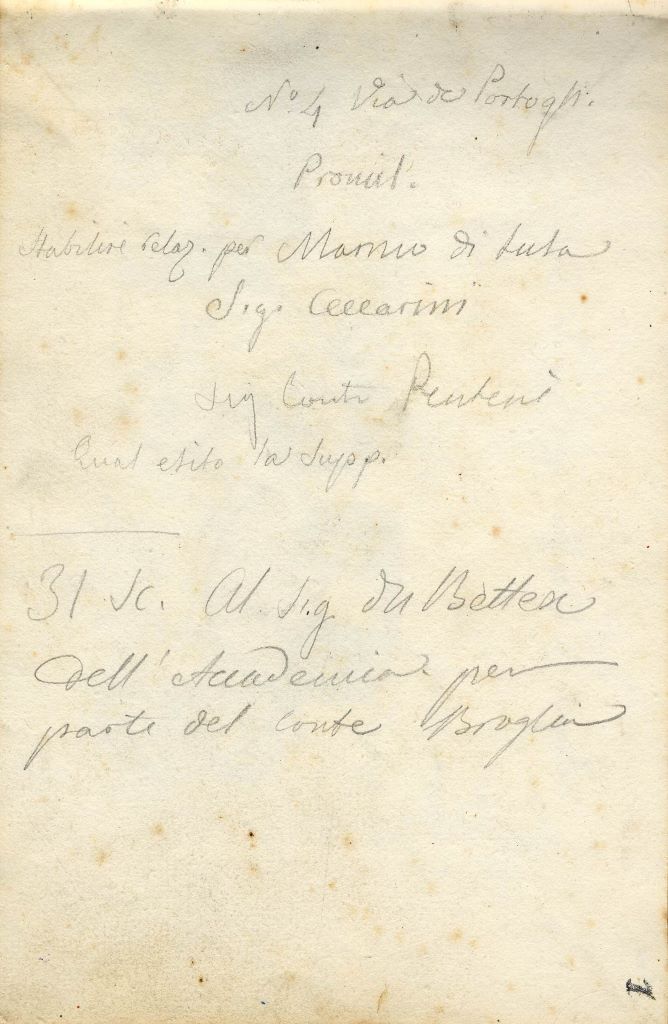 No. 4 Via de Portogh.
Stabilire relaz. per Marmo di
Sig. Ceccarini
Sig Conte
Qual esito la supp.
31 Sc. Al Sig
dell'Accademia per
parte del Conte Broglia
1